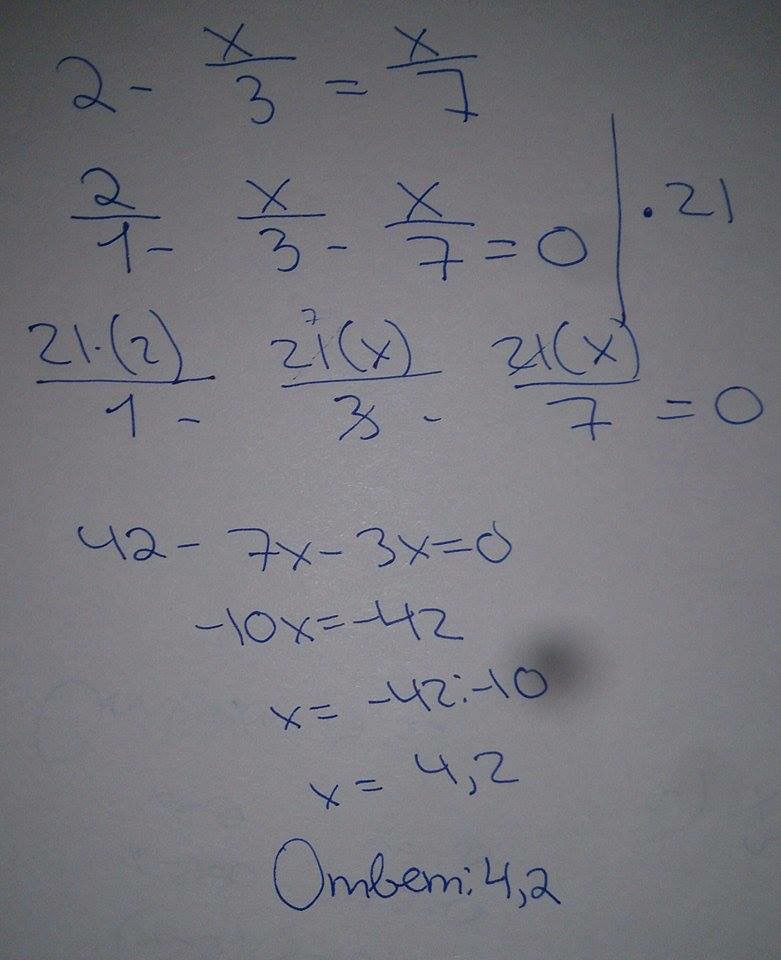 2 - x/3 = x/7
2/1 - x/3 - x/7 = 0 | · 21
21·(2)/1 - 21⁷(x)/3 - 21(x)/7 = 0
42 - 7x - 3x = 0
-10x = -42
x = -42 : -10
x = 4,2
Ответ: 4,2